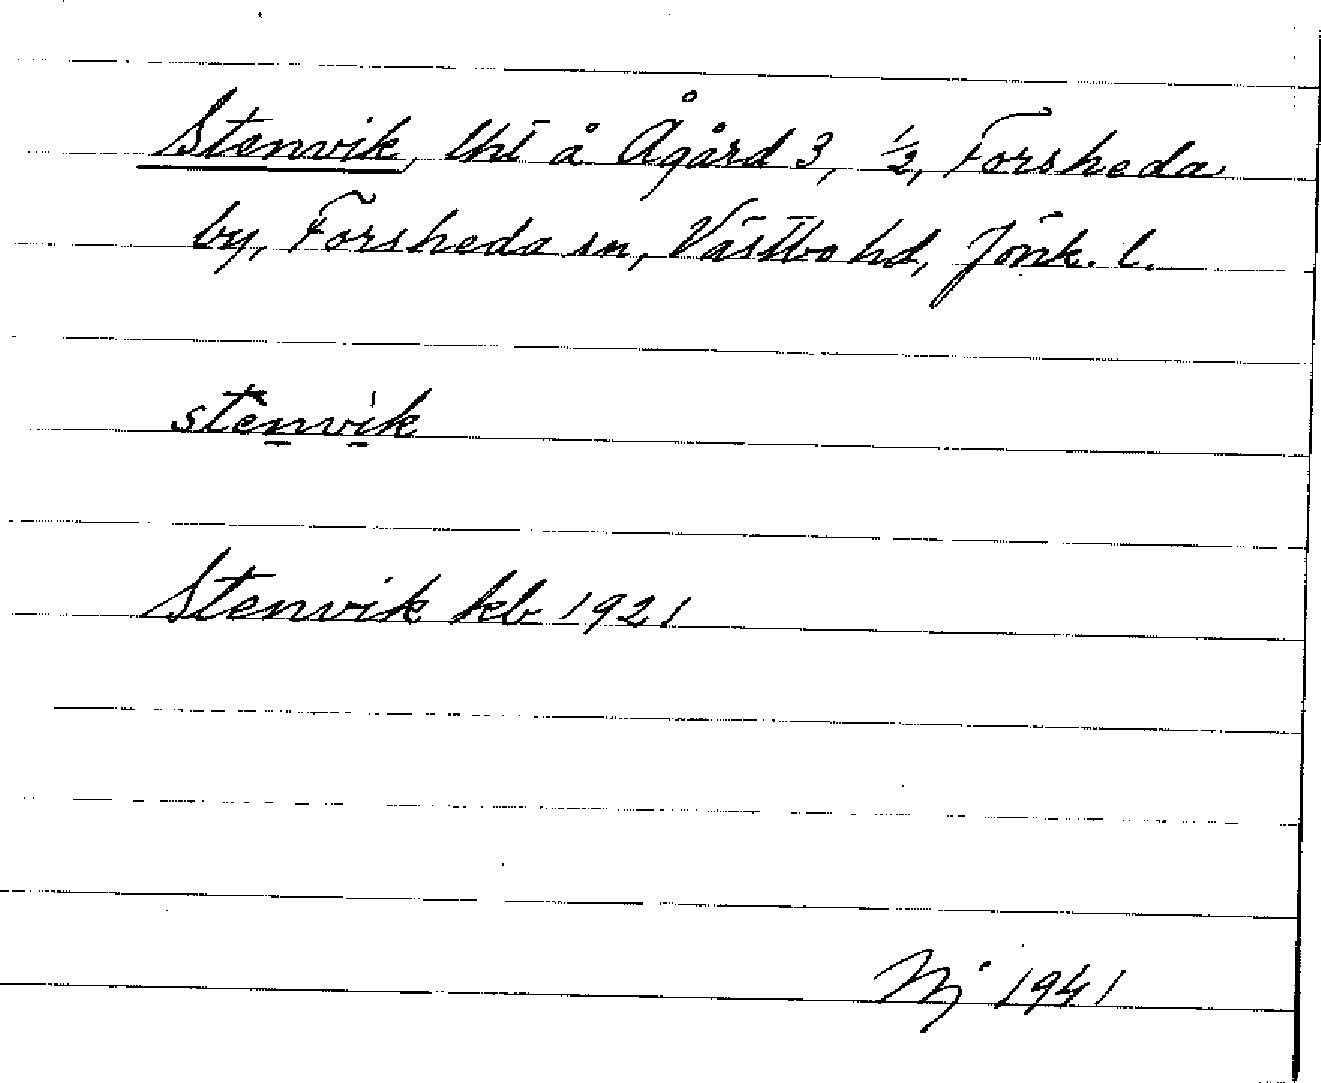 Stenvik, lht å Ågård 3, 1/2, Forsheda
by, Forsheda sn, Västbo hd, Jönk. l.
stenvik
Stenvik kb 1921
Nj 1941